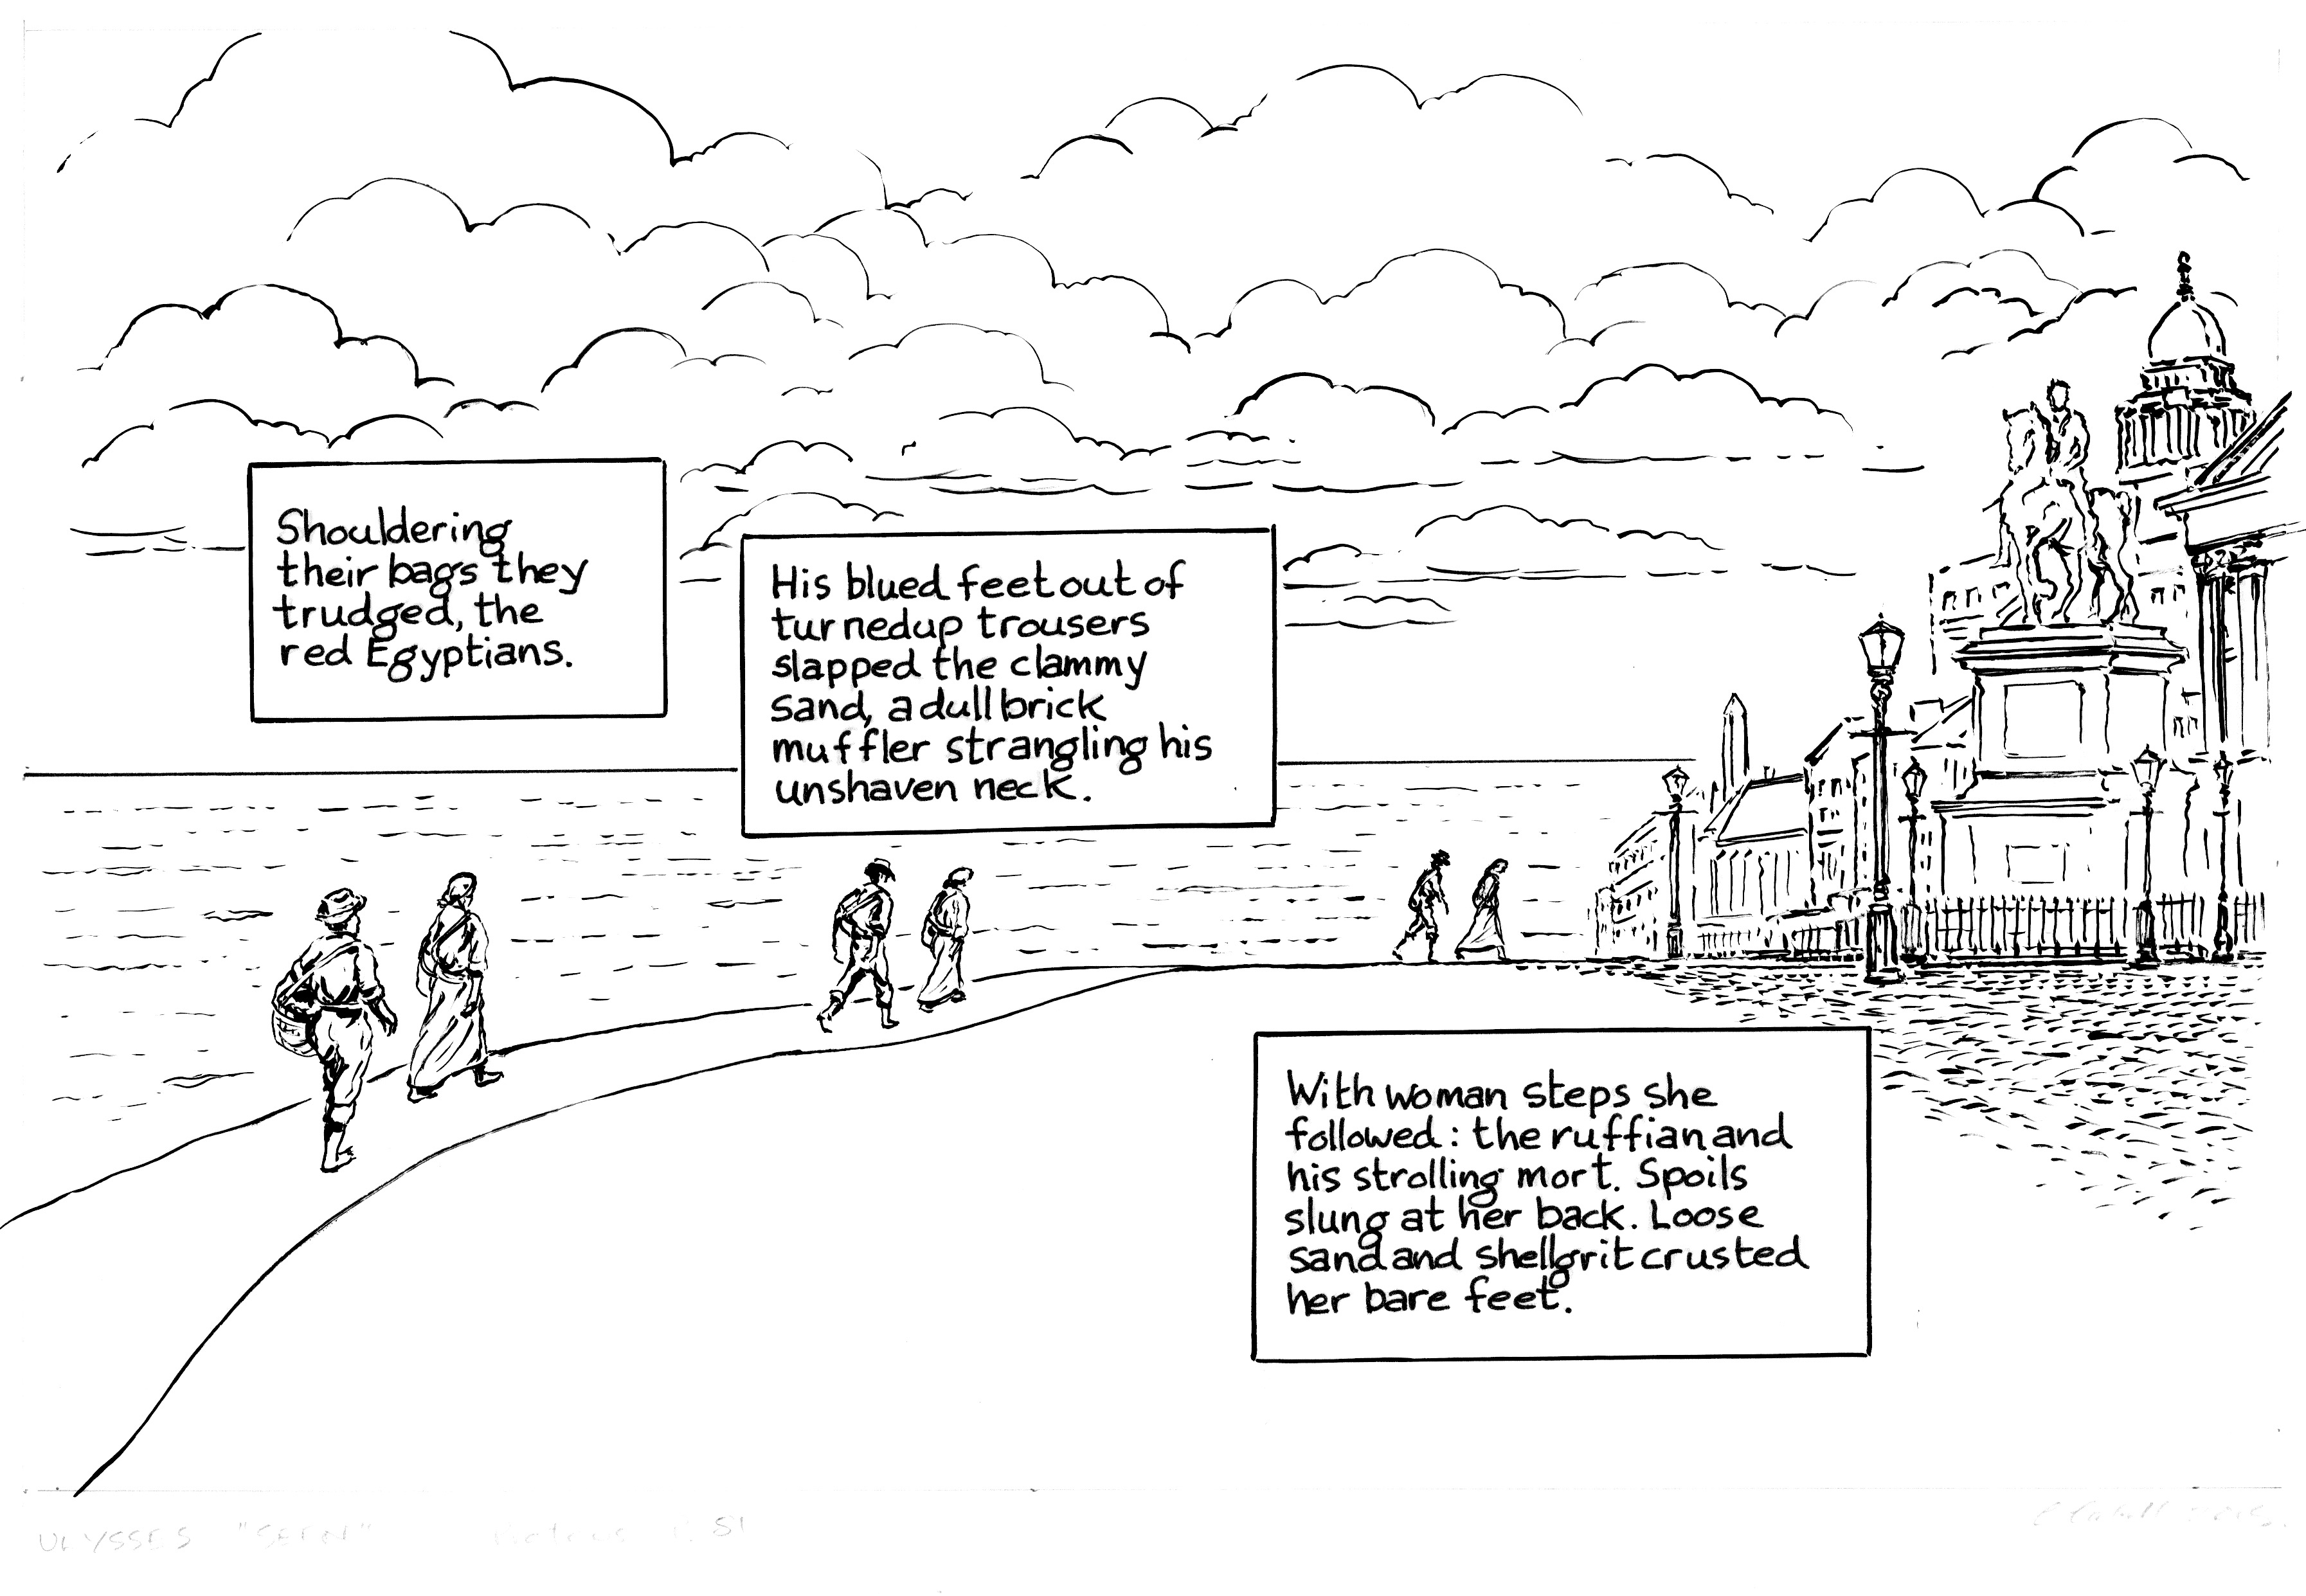 Shouldering
their bags they
trudged, the
red Egyptians.
His blued feet out of
turnedup trousers
slapped the clammy
sand, a dull brick
muffler strangling his
unshaven neck.
With woman steps she
followed : the ruffian and
his strolling mort. Spoils
slung at her back. Loose
sand and shellgrit crusted
her bare feet.
ULYSSES "SEEN" 81